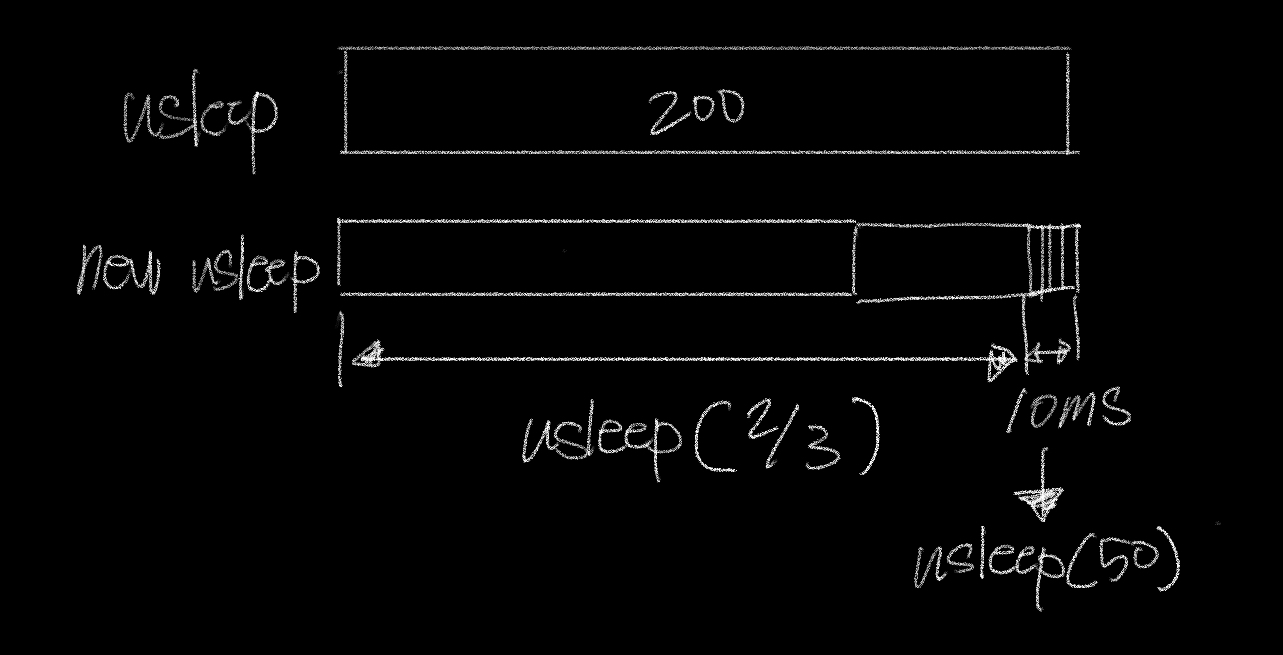 usleep
200
new usleep
usleep(2/3)
10ms
usleep(50)